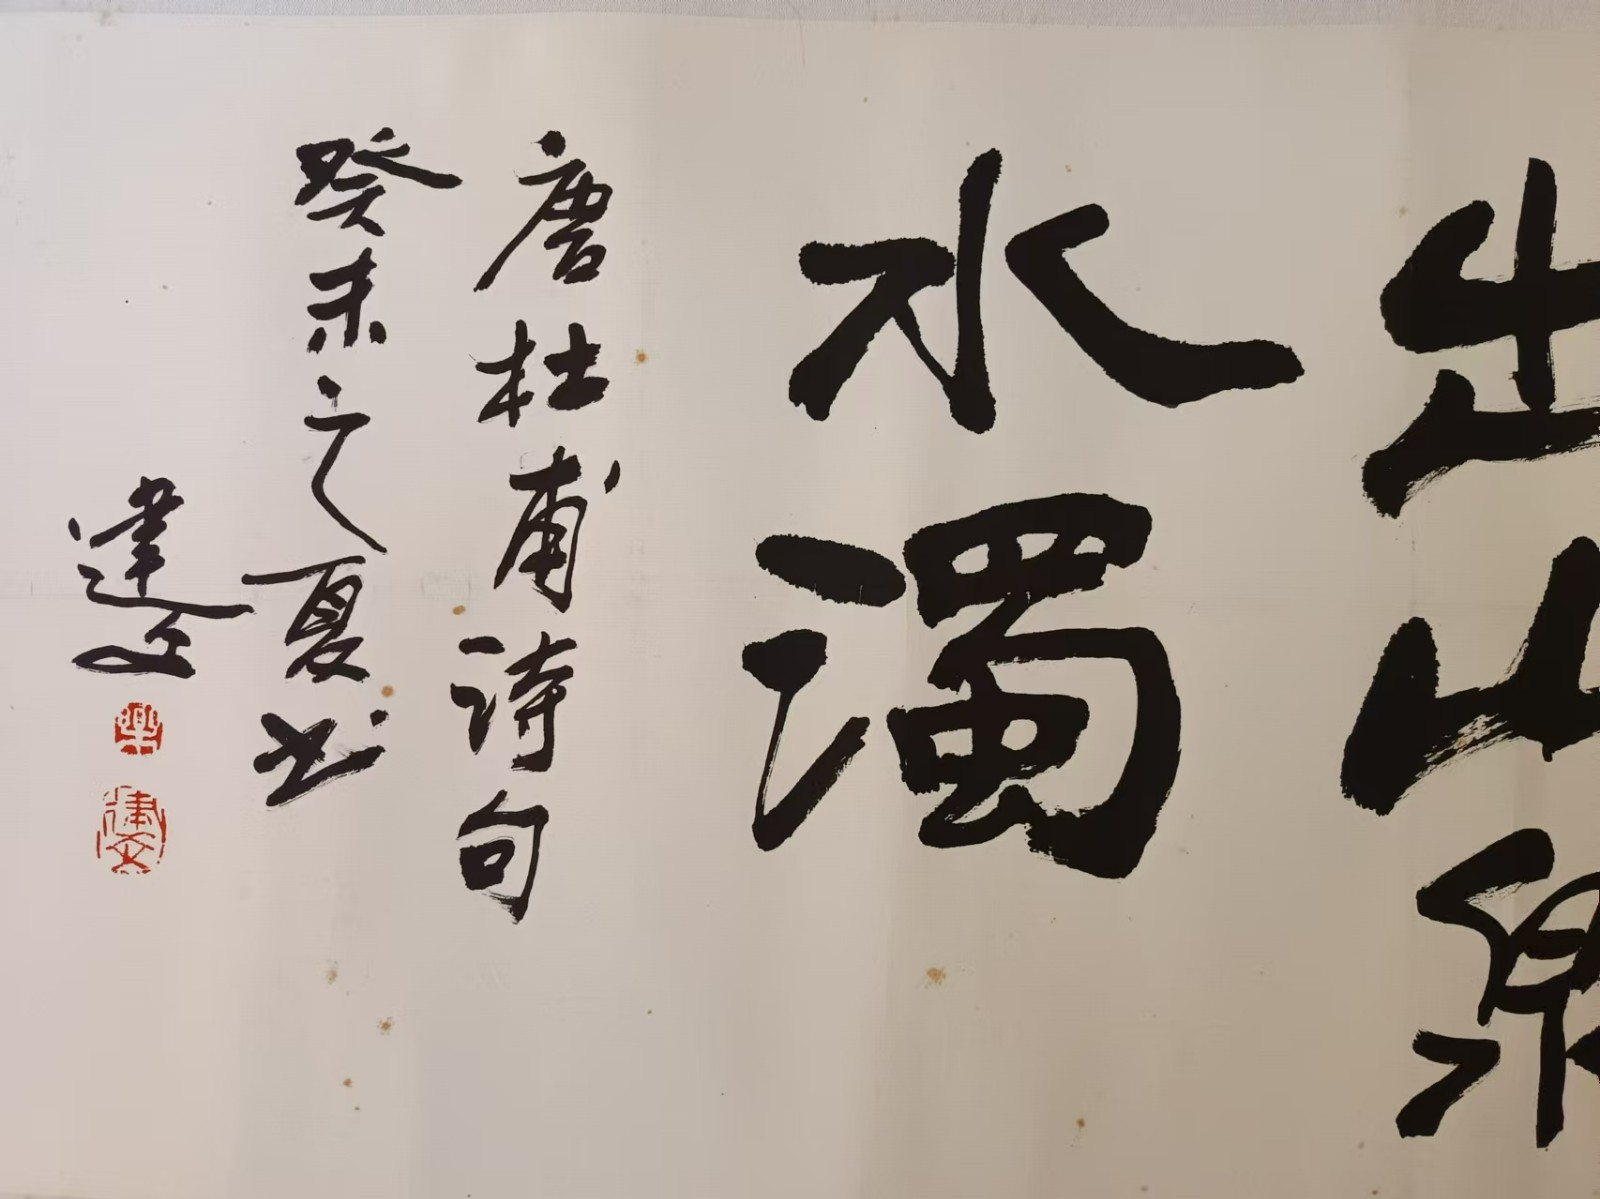 出山泉
水濁
唐杜甫詩句
癸未之夏书
建文
建文